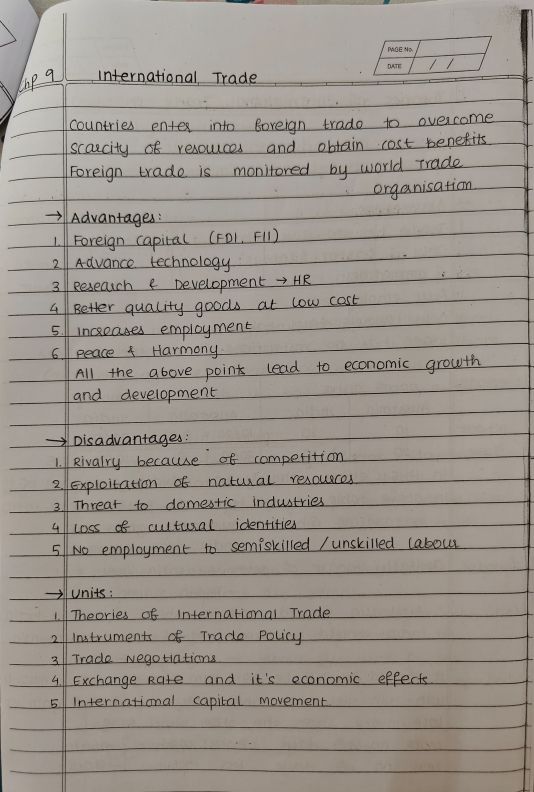 PAGE No.
DATE / /
Chp 9 International Trade
Countries enter into foreign trade to overcome
scarcity of resources and obtain cost benefits.
Foreign trade is monitored by world Trade
organisation.
→ Advantages:
1. Foreign Capital (FDI, FII)
2 Advance technology
3 Research & Development → HR
4 Better quality goods at low cost
5. Increases employment
6. Peace & Harmony.
All the above points lead to economic growth
and development
→ Disadvantages:
1. Rivalry because of competition
2. Exploitation of natural resources
3 Threat to domestic industries
4 Loss of cultural identities
5. No employment to semiskilled / unskilled labour
→ Units:
1. Theories of International Trade
2 Instruments of Trade Policy
3 Trade Negotiations
4 Exchange Rate and it's economic effects.
5 International capital movement.